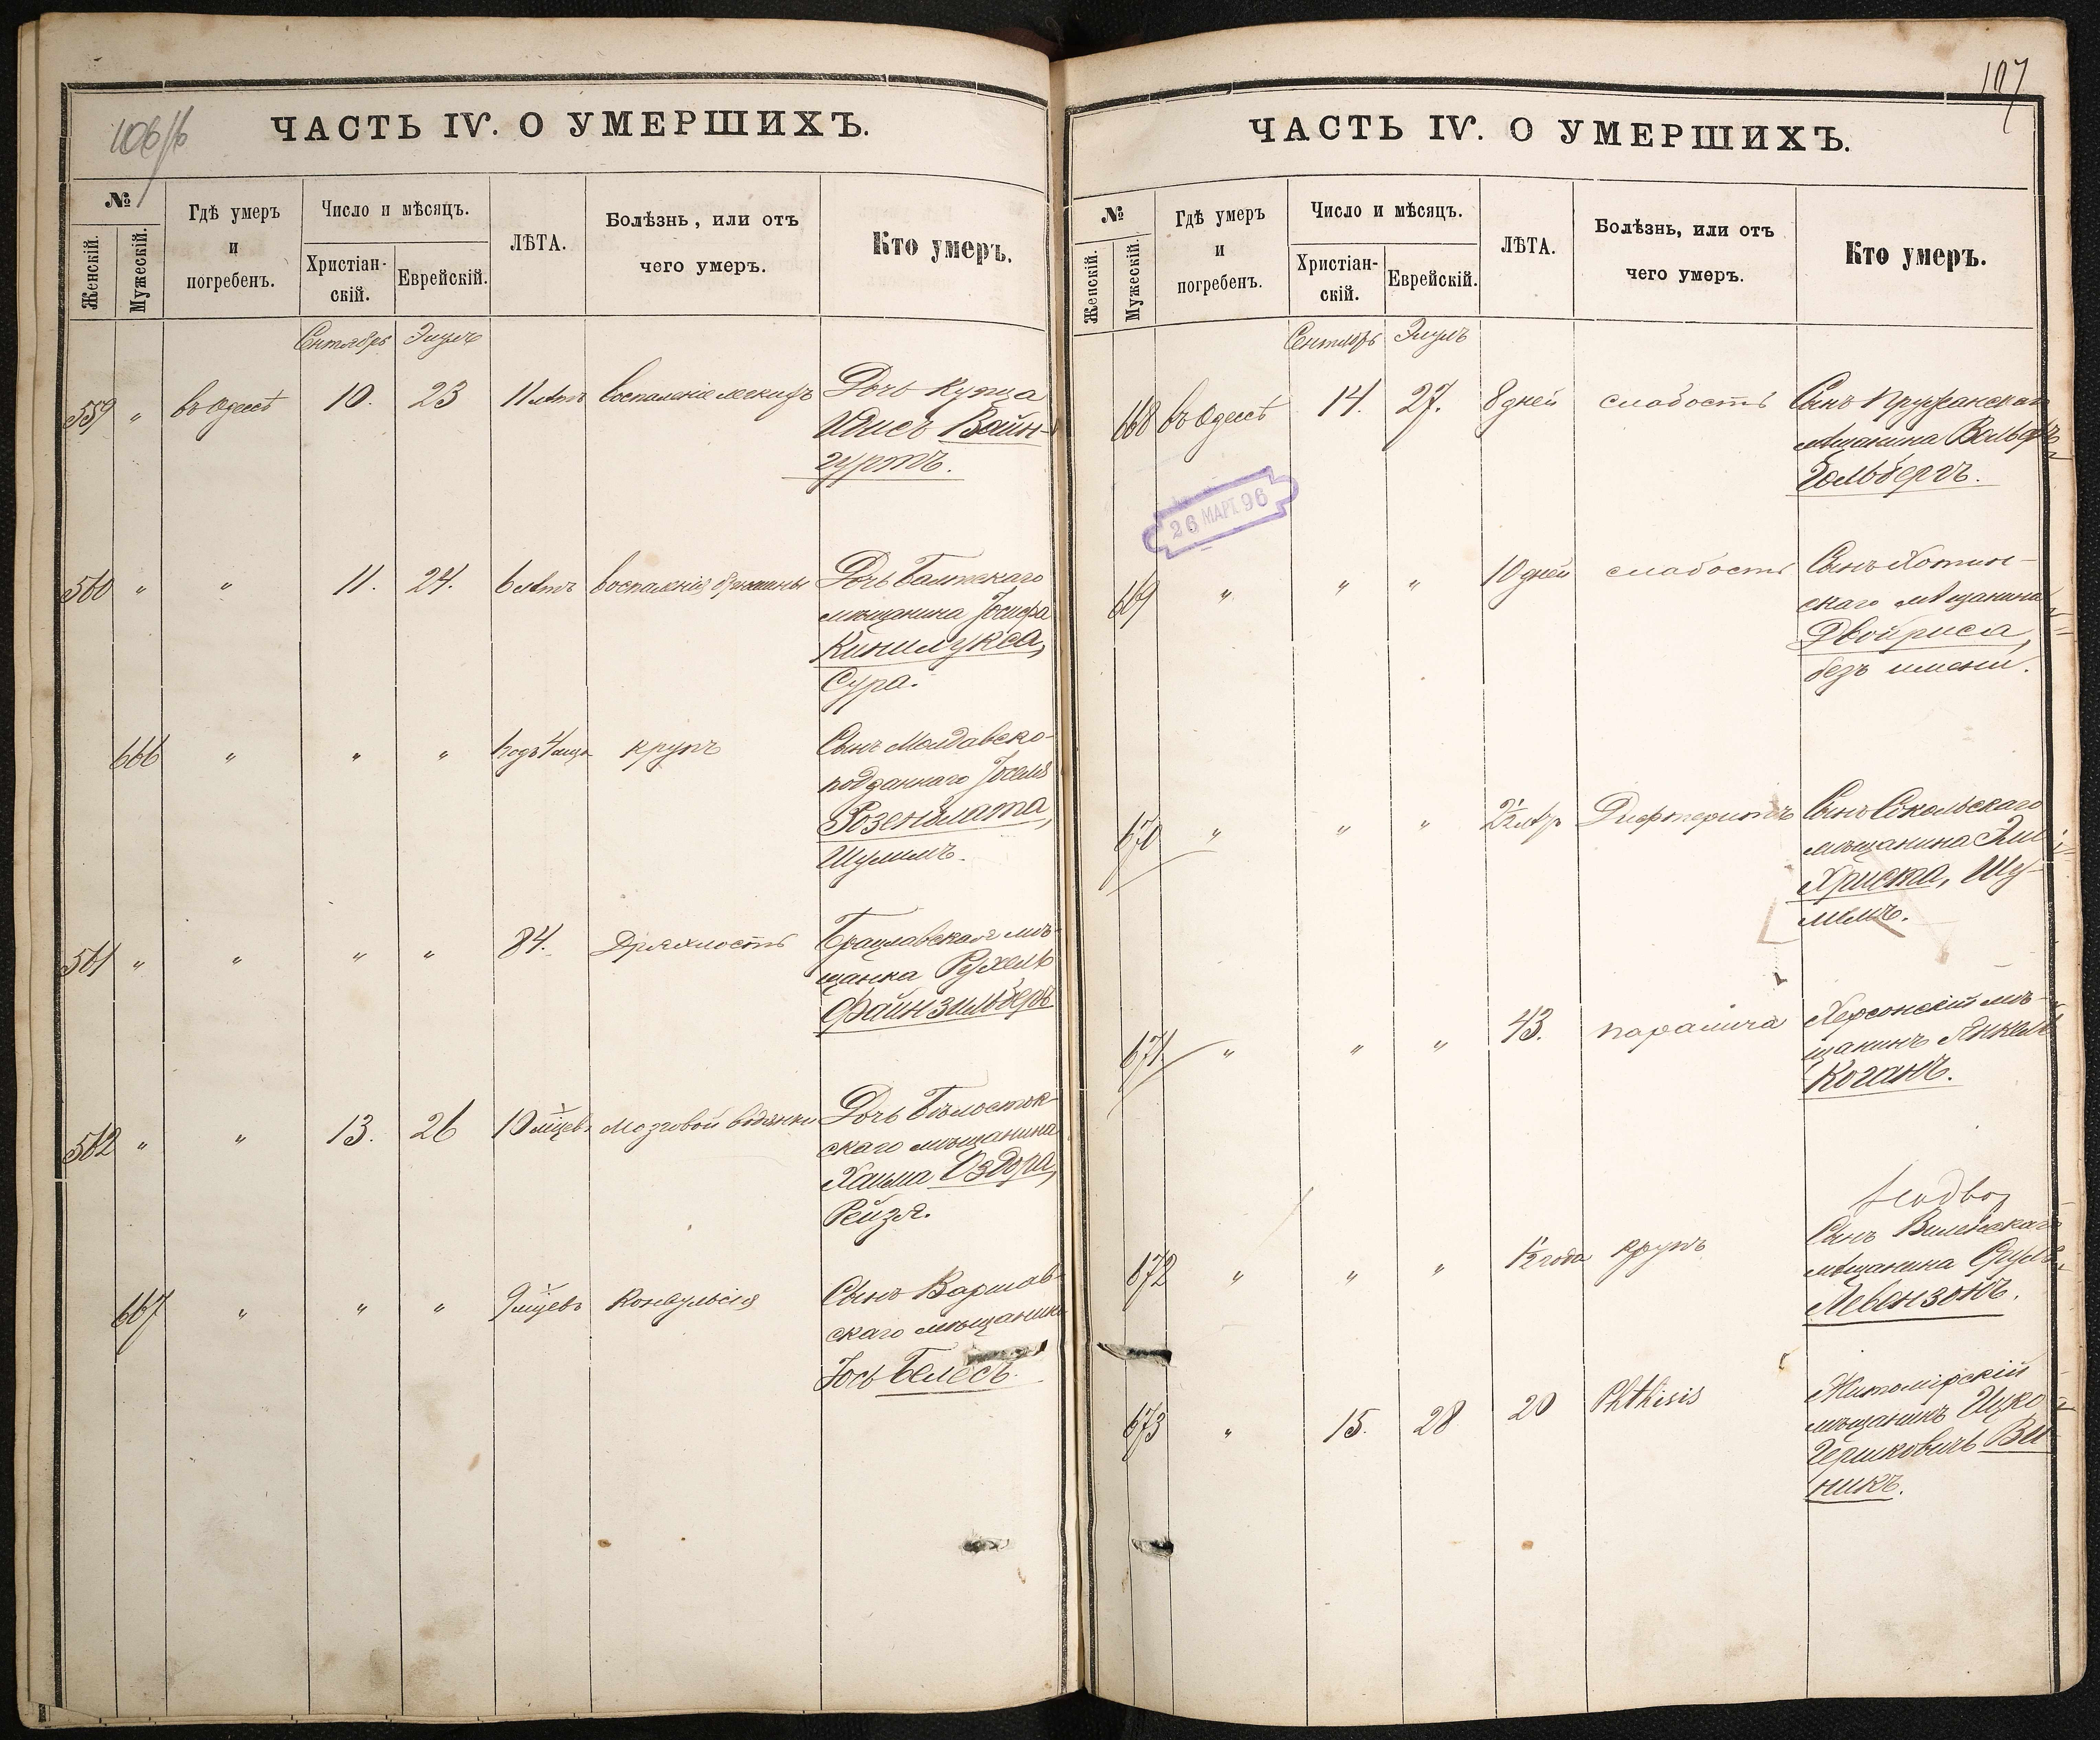 106/б
ЧАСТЬ IV. О УМЕРШИХЪ.
№
Женскій.
Мужескій.
Гдѣ умеръ
и
погребенъ.
Число и мѣсяцъ.
Христіан-
скій.
Еврейскій.
ЛѢТА.
Болѣзнь, или отъ
чего умеръ.
Кто умеръ.
Сентябрь Элулъ
559 " въ Одессѣ 10. 23 11 лѣтъ воспаленіе Дочь Купца
Вайн-
гуртъ.
560 " " 11. 24. 6 лѣтъ Дочь Балтскаго
мѣщанина Іосифа
Кинилукса,
Сура.
666 " " " крупъ Сынъ Молдавско-
подданнаго
Розенблата,
Шулимъ.
561 " " " " 84. Дряхлость Брацлавская мѣ-
щанка Рухель
Файнзильберъ
562 " " 13. 26 10 мѣцевъ Мозговой водянки Дочь Бѣлосток-
скаго мѣщанина
Хаима Оздора,
Рейзя.
667 " " " 9 мѣцевъ Конвульсія Сынъ Варшав-
скаго мѣщанина
Іось Белесъ.
107
ЧАСТЬ IV. О УМЕРШИХЪ.
№
Женскій.
Мужескій.
Гдѣ умеръ
и
погребенъ.
Число и мѣсяцъ.
Христіан-
скій.
Еврейскій.
ЛѢТА.
Болѣзнь, или отъ
чего умеръ.
Кто умеръ.
Сентябрь Элулъ
668 въ Одессѣ 14. 27. 8 дней слабость Сынъ Пружанскаго
мѣщанина Вольфъ
Гольбергъ.
26 МАРТ. 96
669 " " " 10 дней слабость Сынъ Хотин-
скаго мѣщанина
Двойриса,
безъ имени.
670 " " " 2½ Дифтеритъ Сынъ Сокольскаго
мѣщанина
Хриска, Шу-
лимъ.
671 " " " 43. параличъ Херсонскій мѣ-
щанинъ Янкель
Коганъ.
672 " " " 1½ года крупъ Сынъ Виленскаго
мѣщанина Сруль
Левензонъ.
673 " 15. 28 20 Phthisis Житомірскій
мѣщанинъ Ицко
Гершковичъ Ви
никъ.